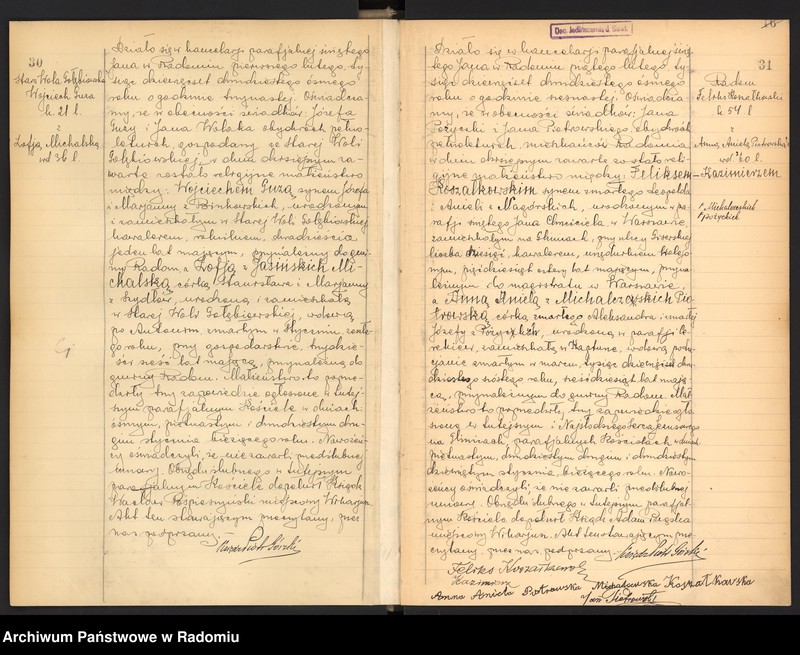 30
Stara Wola Gołębiowska
Wojciech Guza
l. 21 l.
z
Zofją Michalską
wd 36 l.
Działo się w kancelarji parafjalnej świętego
Jana w Radomiu pierwszego lutego, ty-
siąc dziewięćset dwudziestego ósmego
roku o godzinie trzynastej. Oświadcza-
my, że w obecności świadków: Józefa
Guzy i Jana Wolaka obydwóch pełno-
letnich, gospodarzy ze Starej Woli
Gołębiowskiej, w dniu dzisiejszym za-
warte zostało religijne małżeństwo
między: Wojciechem Guzą, synem Józefa
i Marjanny z Bińkowskich, urodzonym
i zamieszkałym w Starej Woli Gołębiowskiej
kawalerem, rolnikiem, dwadzieścia
jeden lat mającym, przynależnym do gmi-
ny Radom a Zofją z Jasińskich Mi-
chalską córką Stanisława i Marjanny
z urodzoną i zamieszkałą
w Starej Woli Gołębiowskiej, wdową
po Antonim zmarłym w styczniu zeszłe-
go roku, przy gospodarstwie, trzydzie-
ści sześć lat mającą, przynależną do
gminy Radom. Małżeństwo to poprze-
dziły trzy zapowiedzie ogłoszone w tutej-
szym parafjalnym Kościele w dniach:
ósmym, piętnastym i dwudziestym dru-
gim stycznia bieżącego roku. Nowożeń-
cy oświadczyli, że nie zawarli przedślubnej
umowy. Obrzędu ślubnego w tutejszym
parafjalnym Kościele dopełnił Ksiądz
Wacław miejscowy Wikarjusz
Akt ten stawającym przeczytany, przez
nas podpisany.
Ksiądz Piotr Górski
31
Radom
Feliks Koszałkowski
k 54 l
z
Anną Anielą Piotrowską
wd 60 l.
Kazimierzem
z Michalczewskich
Działo się w kancelarji parafjalnej świę-
tego Jana w Radomiu piątego lutego, ty-
siąc dziewięćset dwudziestego ósmego
roku o godzinie szesnastej. Oświadcza-
my, że w obecności świadków: Jana
i Jana Piotrowskiego, obydwóch
pełnoletnich, mieszkańców Radomia
w dniu dzisiejszym zawarte zostało reli-
gijne małżeństwo między: Feliksem-
Koszałkowskim synem zmarłego Leopolda
i Anieli z Nagórskich, urodzonym w pa-
rafji świętego Jana Chrzciciela w Warszawie
zamieszkałym na przy ulicy
liczba kawalerem, urzędnikiem
pięćdziesiąt cztery lat mającym, przyna-
leżnym do magistratu w Warszawie,
a Anną Anielą z Michalczewskich Pio-
trowską córką zmarłego Aleksandra i zmarłej
Józefy z urodzoną w parafji
zamieszkałą w Kapturze, wdową po
zmarłym w marcu, tysiąc dziewięćset dwu-
dziestego szóstego roku, sześćdziesiąt lat mają-
cą, przynależnym do gminy Radom. Mał-
żeństwo to poprzedziły trzy zapowiedzie ogło-
szone w tutejszym i Najsłodszego Serca Jezusowego
na Glinicach, parafjalnych Kościołach w dniach
piętnastym, dwudziestym drugim i dwudziestym
dziewiątym stycznia, bieżącego roku. Nowo-
żeńcy oświadczyli że nie zawarli przedślubnej
umowy. Obrzędu ślubnego w tutejszym parafjal-
nym Kościele dopełnił Ksiądz Adam
miejscowy Wikarjusz. Akt ten stawającym prze-
czytany, przez nas podpisany. Ksiądz Piotr Górski
Feliks Koszałkowski
Kazimierz
Anna Aniela Piotrowska Michalewska Koszałkowska
Jan Piotrowski
Archiwum Państwowe w Radomiu